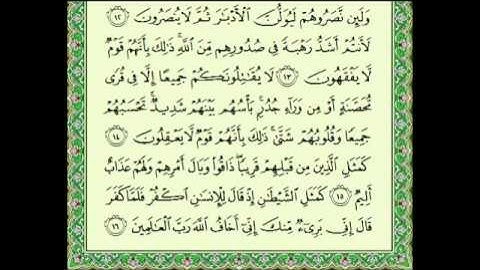 وَلَئِن نَّصَرُوهُمْ لَيُوَلُّنَّ ٱلْأَدْبَٰرَ ثُمَّ لَا يُنصَرُونَ ١٢
لَأَنتُمْ أَشَدُّ رَهْبَةً فِى صُدُورِهِم مِّنَ ٱللَّهِ ذَٰلِكَ بِأَنَّهُمْ قَوْمٌ
لَّا يَفْقَهُونَ ١٣ لَا يُقَٰتِلُونَكُمْ جَمِيعًا إِلَّا فِى قُرًى
مُّحَصَّنَةٍ أَوْ مِن وَرَآءِ جُدُرٍۭ بَأْسُهُم بَيْنَهُمْ شَدِيدٌ تَحْسَبُهُمْ
جَمِيعًا وَقُلُوبُهُمْ شَتَّىٰ ذَٰلِكَ بِأَنَّهُمْ قَوْمٌ لَّا يَعْقِلُونَ ١٤
كَمَثَلِ ٱلَّذِينَ مِن قَبْلِهِمْ قَرِيبًا ذَاقُوا۟ وَبَالَ أَمْرِهِمْ وَلَهُمْ عَذَابٌ
أَلِيمٌ ١٥ كَمَثَلِ ٱلشَّيْطَٰنِ إِذْ قَالَ لِلْإِنسَٰنِ ٱكْفُرْ فَلَمَّا كَفَرَ
قَالَ إِنِّى بَرِىٓءٌ مِّنكَ إِنِّىٓ أَخَافُ ٱللَّهَ رَبَّ ٱلْعَٰلَمِينَ ١٦